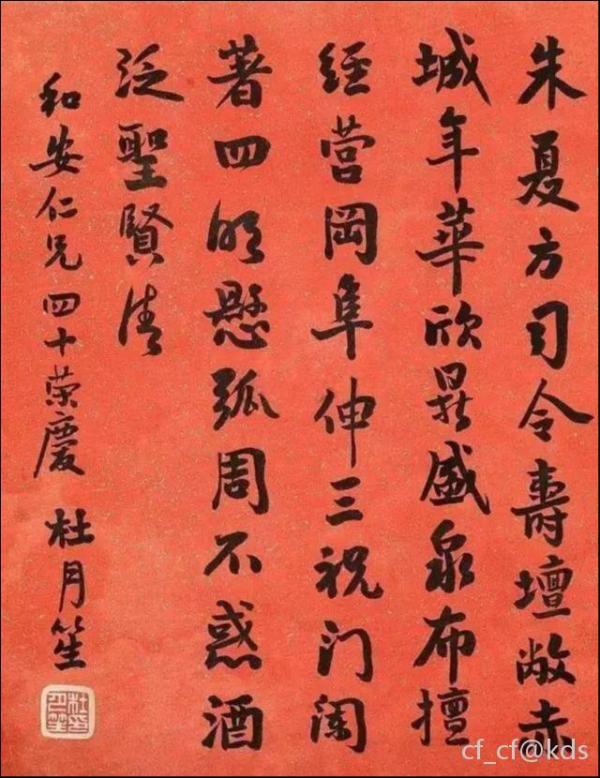 朱夏方司令壽壇敞赤
城年華欣鼎盛泉布擅
經营岡阜伸三祝门闌
著四明懸弧周不惑酒
泛聖賢清
和安仁兄四十荣慶 杜月笙
cf_cf@kds